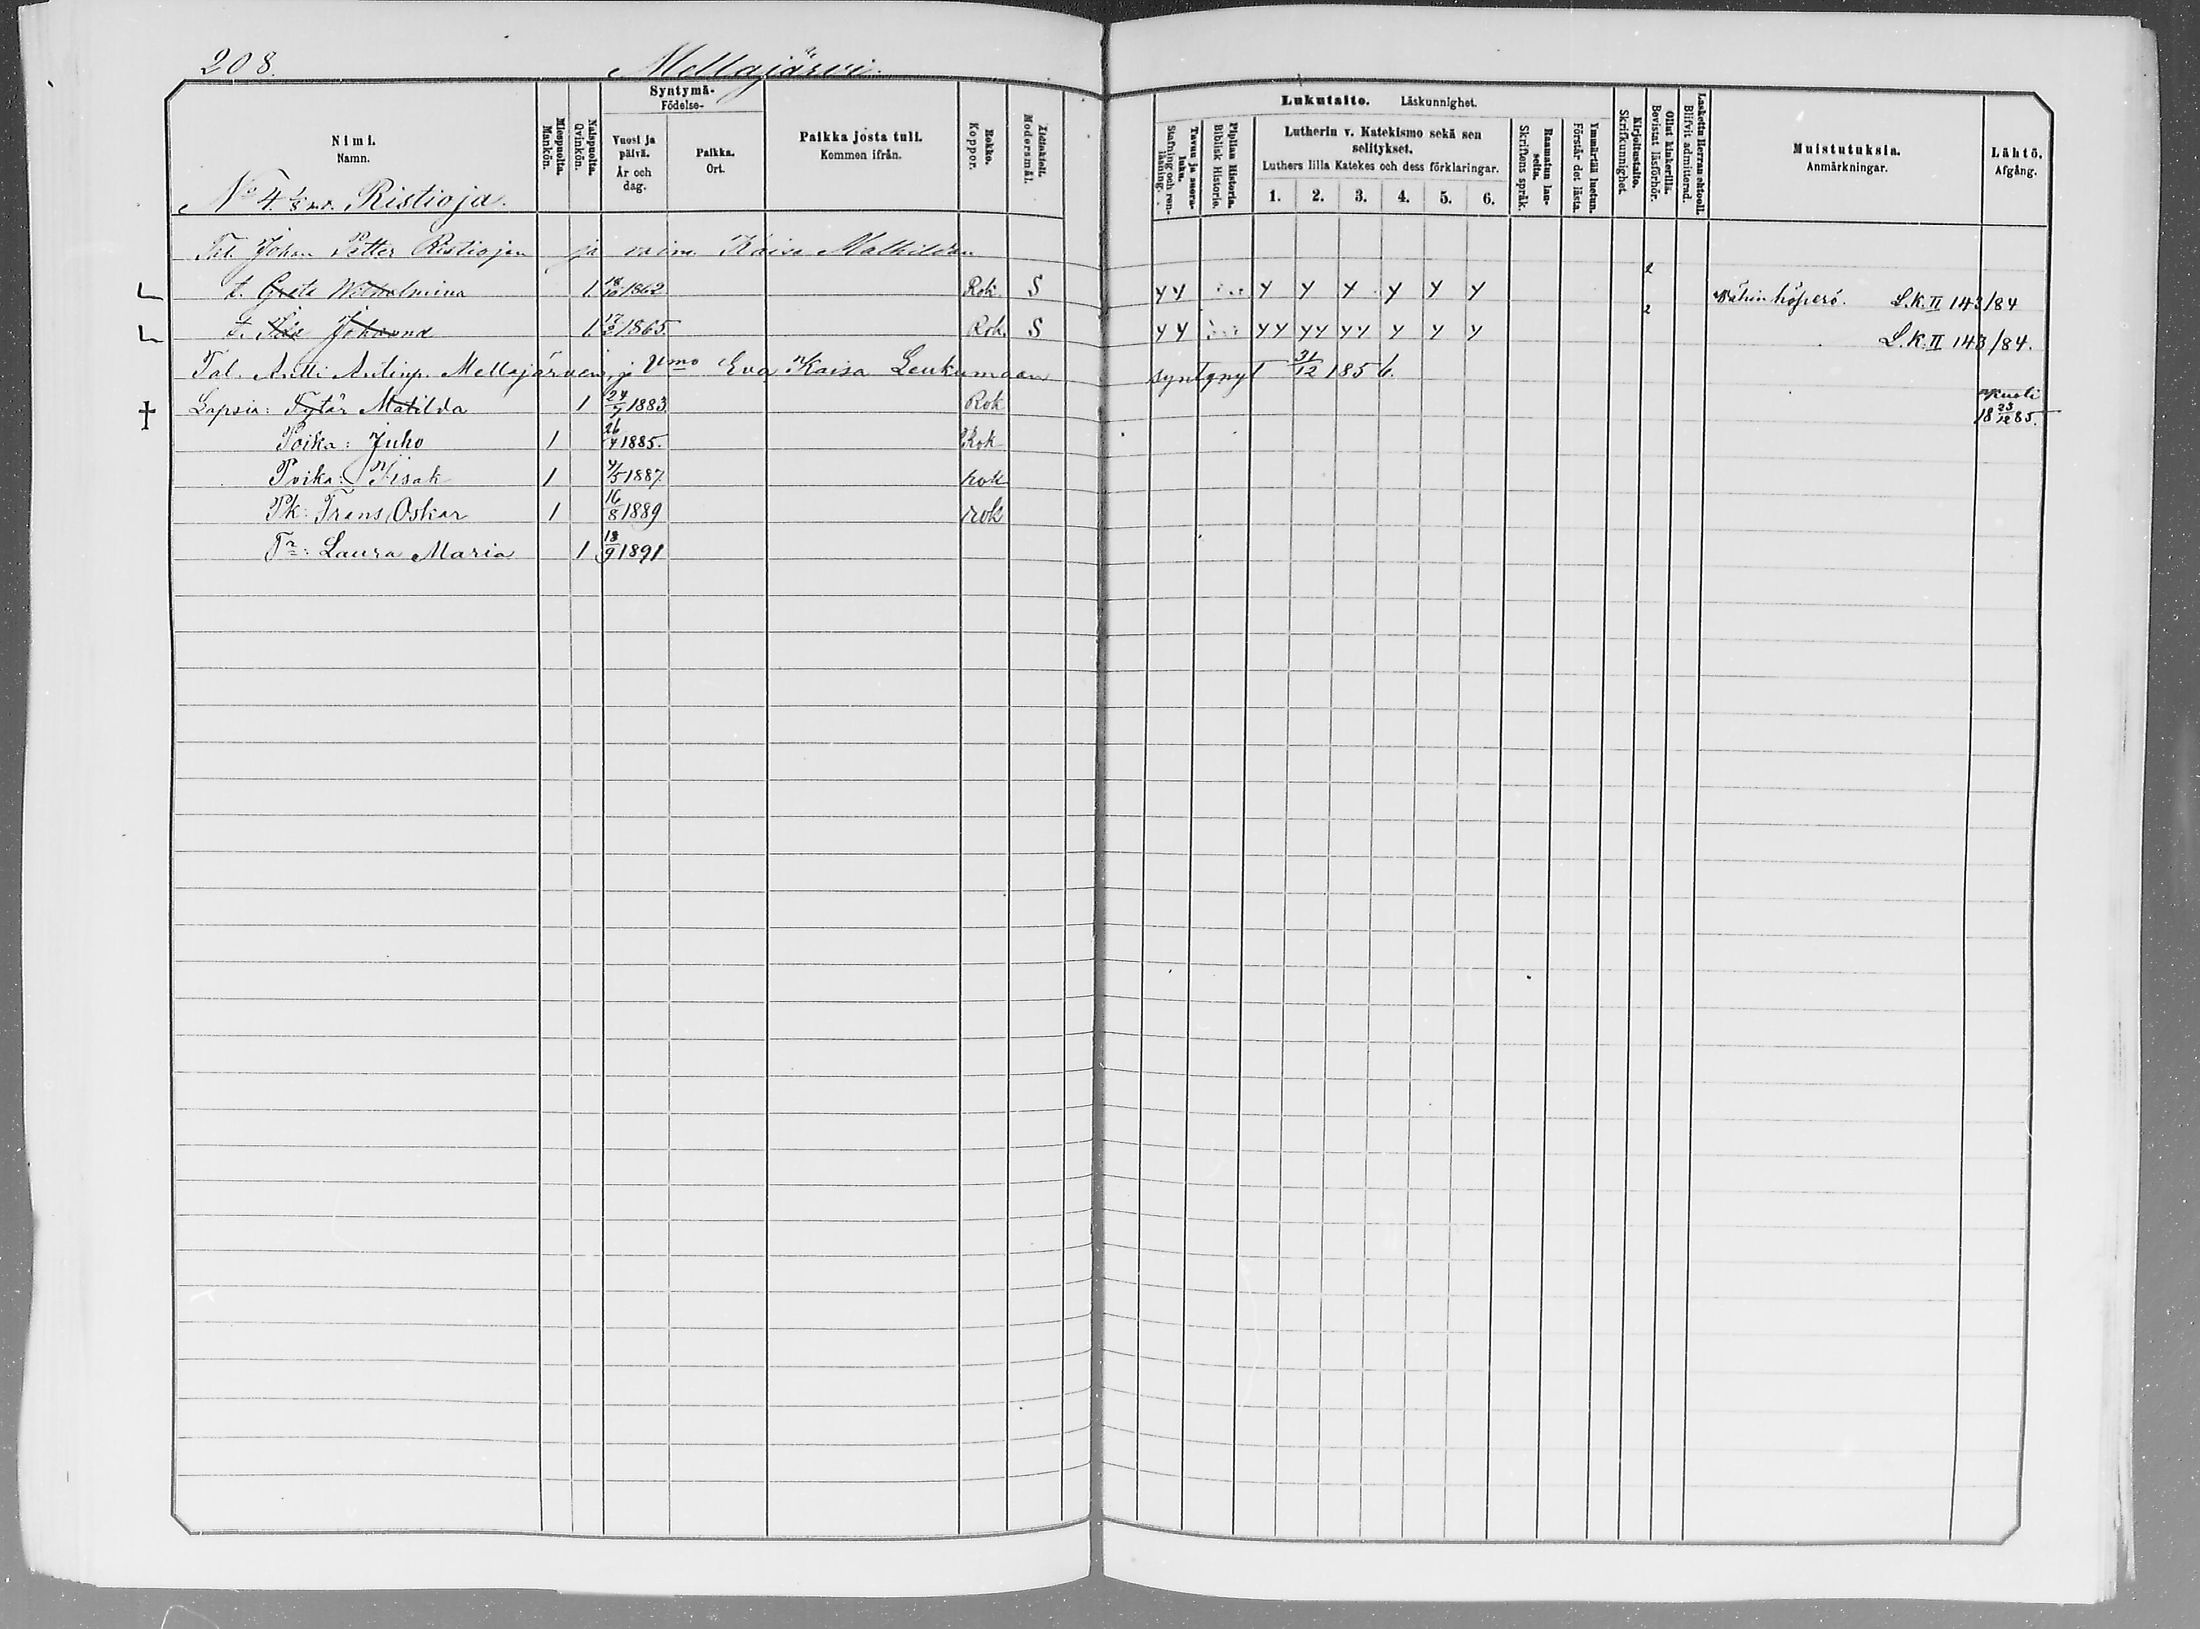 208. Mellajärvi.
Nimi. Namn.
Miespuolia. Mankön.
Naispuolia. Qvinkön.
Syntymä- Födelse-
Vuosi ja päivä. År och dag.
Paikka. Ort.
Paikka josta tuli. Kommen ifrån.
Rokko. Koppor.
Äidinkieli. Modersmål.
Lukutaito. Läskunnighet.
Tavuu ja suora-luku. Stafning och ren-läsning.
Piplian Historia. Biblisk Historie.
Lutherin v. Katekismo sekä sen selitykset.
Luthers lilla Katekes och dess förklaringar.
1. 2. 3. 4. 5. 6.
Raamatun lau-seita. Skriftens språk.
Ymmärtää luetun. Förstår det lästa.
Kirjoitustaito. Skrifkunnighet.
Ollut kinkerillä. Bevistat läsförhör.
Laskettu Herran ehtooll. Blifvit admitterad.
Muistutuksia. Anmärkningar.
Lähtö. Afgång.
No 4. 1/8 Ristioja.
Johan Petter Ristiojan ja vaim. Kaisa Mathildan
t. Greta Wilhelmina 1. 1862 Rok. S y y y y y y y y 2 L.K. II 143/84
t. Johanna 1. 17/3 1865 Rok S y y y y y y y y y y y 2 L.K. II 143/84.
Tal. Antti Antinp. Mellajärven ja Vmo Eva Kaisa Leukumaan syntynyt 31/12 1856.
Lapsia: Tytär Matilda 1 24/7 1883 Rok kuoli 18 23/12 85.
Poika: Juho 1 26/4 1885. Rok
Poika: Iisak 1 4/5 1887 rok
Pk: Frans Oskar 1 16/8 1889 rok
Tr: Laura Maria 1 13/9 1891